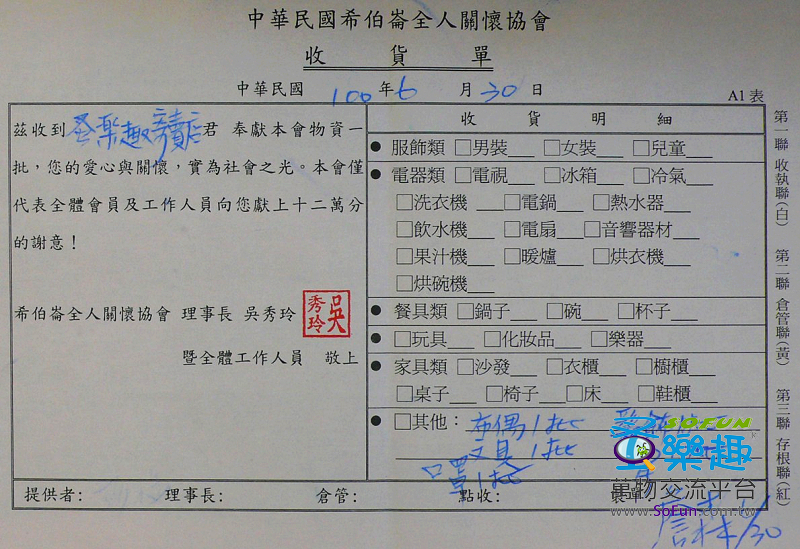 中華民國希伯崙全人關懷協會
收 貨 單
中華民國 100 年 6 月 30 日
A1 表
茲收到 樂趣 君 奉獻本會物資一
批，您的愛心與關懷，實為社會之光。本會僅
代表全體會員及工作人員向您獻上十二萬分
的謝意！
希伯崙全人關懷協會 理事長 吳秀玲
吳秀玲
暨全體工作人員 敬上
收 貨 明 細
● 服飾類 □男裝___ □女裝___ □兒童___
● 電器類 □電視___ □冰箱___ □冷氣___
□洗衣機___ □電鍋___ □熱水器___
□飲水機___ □電扇___ □音響器材___
□果汁機___ □暖爐___ □烘衣機___
□烘碗機___
● 餐具類 □鍋子___ □碗___ □杯子___
● □玩具___ □化妝品___ □樂器___
● 家具類 □沙發___ □衣櫃___ □櫥櫃___
□桌子___ □椅子___ □床___ □鞋櫃___
● □其他： 布偶1批
文具1批
口罩1批
提供者： 理事長： 倉管： 點收：
6/30
第一聯 收執聯(白) 第二聯 倉管聯(黃) 第三聯 存根聯(紅)
SOFUN
樂趣
萬物交流平台
www.SoFun.com.tw